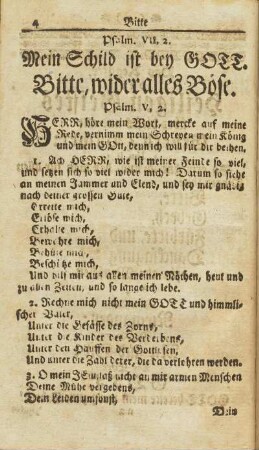 4 Bitte
Psalm. VII. 2.
Mein Schild ist bey GOTT.
Bitte, wider alles Böse.
Psalm. V, 2.
HERR, höre mein Wort, mercke auf meine
Rede, vernimm mein Schreyen mein König
und mein GOtt, denn ich will für dir bethen.
1. Ach HERR, wie ist meiner Feinde so viel,
und setzen sich so viel wider mich! Darum so siehe
an meinen Jammer und Elend, und sey mir gnädig
nach deiner grossen Güte,
Errette mich,
Erlöse mich,
Erhalte mich,
Bewahre mich,
Behüte mich,
Beschütze mich,
Und hilf mir aus allen meinen Nöthen, heut und
zu allen Zeiten, und so lange ich lebe.
2. Rechne mich nicht mein GOTT und himmli-
scher Vater,
Unter die Gefässe des Zorns,
Unter die Kinder des Verderbens,
Unter den Hauffen der Gottlosen,
Und unter die Zahl derer, die da verlohren werden.
3. O mein JEsu, laß nicht an mir armen Menschen
Deine Mühe vergebens,
Dein Leiden umsonst,